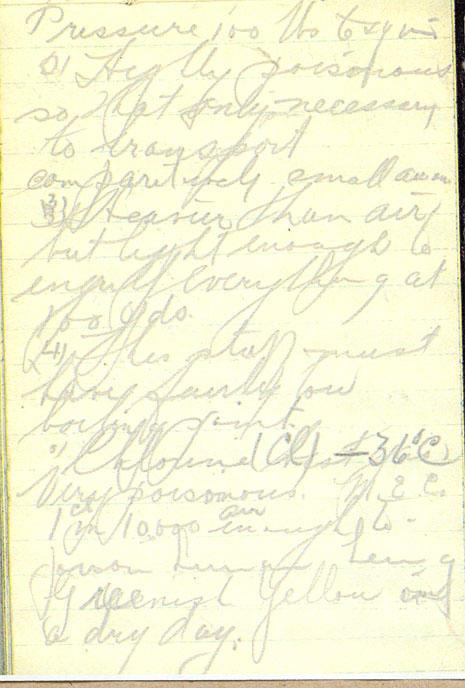 Pressure 100 lbs to sq in
2) Highly poisonous
so that only necessary
to transport
comparatively small
3) Heavier than air
but light enough to
engulf everything at
100 yds.
(4) This stuff must
have fairly low
boiling point.
Chlorine (Cl) - 36°C
Very poisonous.
1 in 10,000 air enough to
poison human being
Greenish yellow
a dry day.